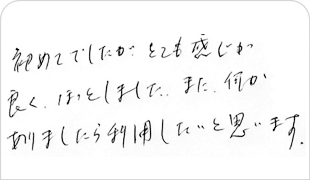 初めてでしたが、とても感じが
良く、ほっとしました。また、何か
ありましたら利用したいと思います。